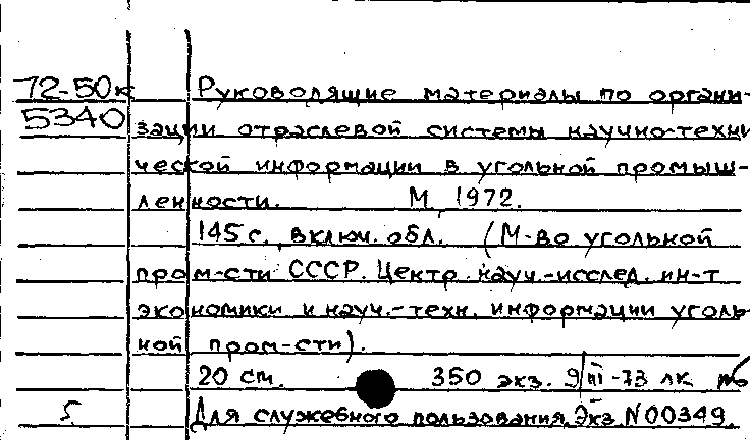 72-50к Руководящие материалы по органи-
5340 зации отраслевой системы научно-техни
ческой информации в угольной промыш-
ленности. М, 1972.
145 с., включ. обл. (М-во угольной
пром-сти СССР. Центр. науч.-исслед. ин-т
экономики и науч.-техн. информации уголь-
ной пром-сти).
20 см. 350 экз. 9/III-73 лк
5. Для служебного пользования. Экз. N 00349.